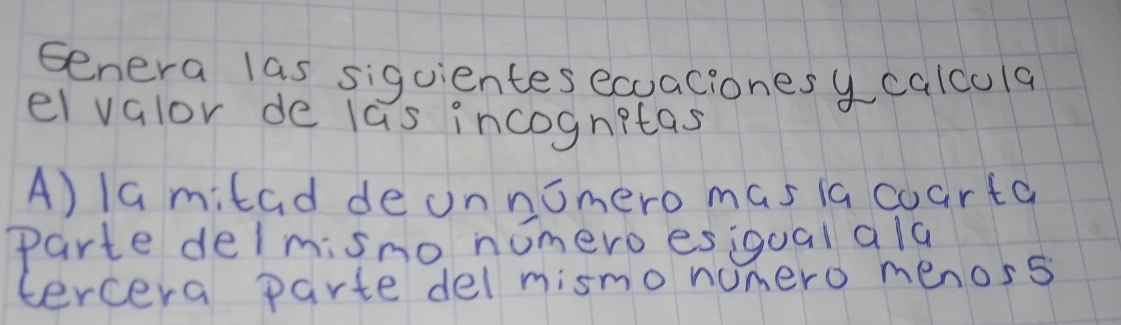 Genera las siguientes ecuaciones y calcula
el valor de las incognitas
A) la mitad de un número mas la cuarta
parte del mismo número es igual a la
tercera parte del mismo número menos 5